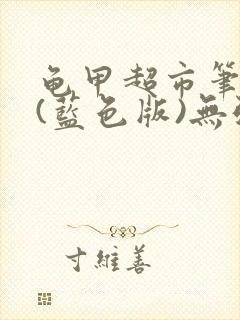 龟甲超市筆
(藍色版)無
寸維善